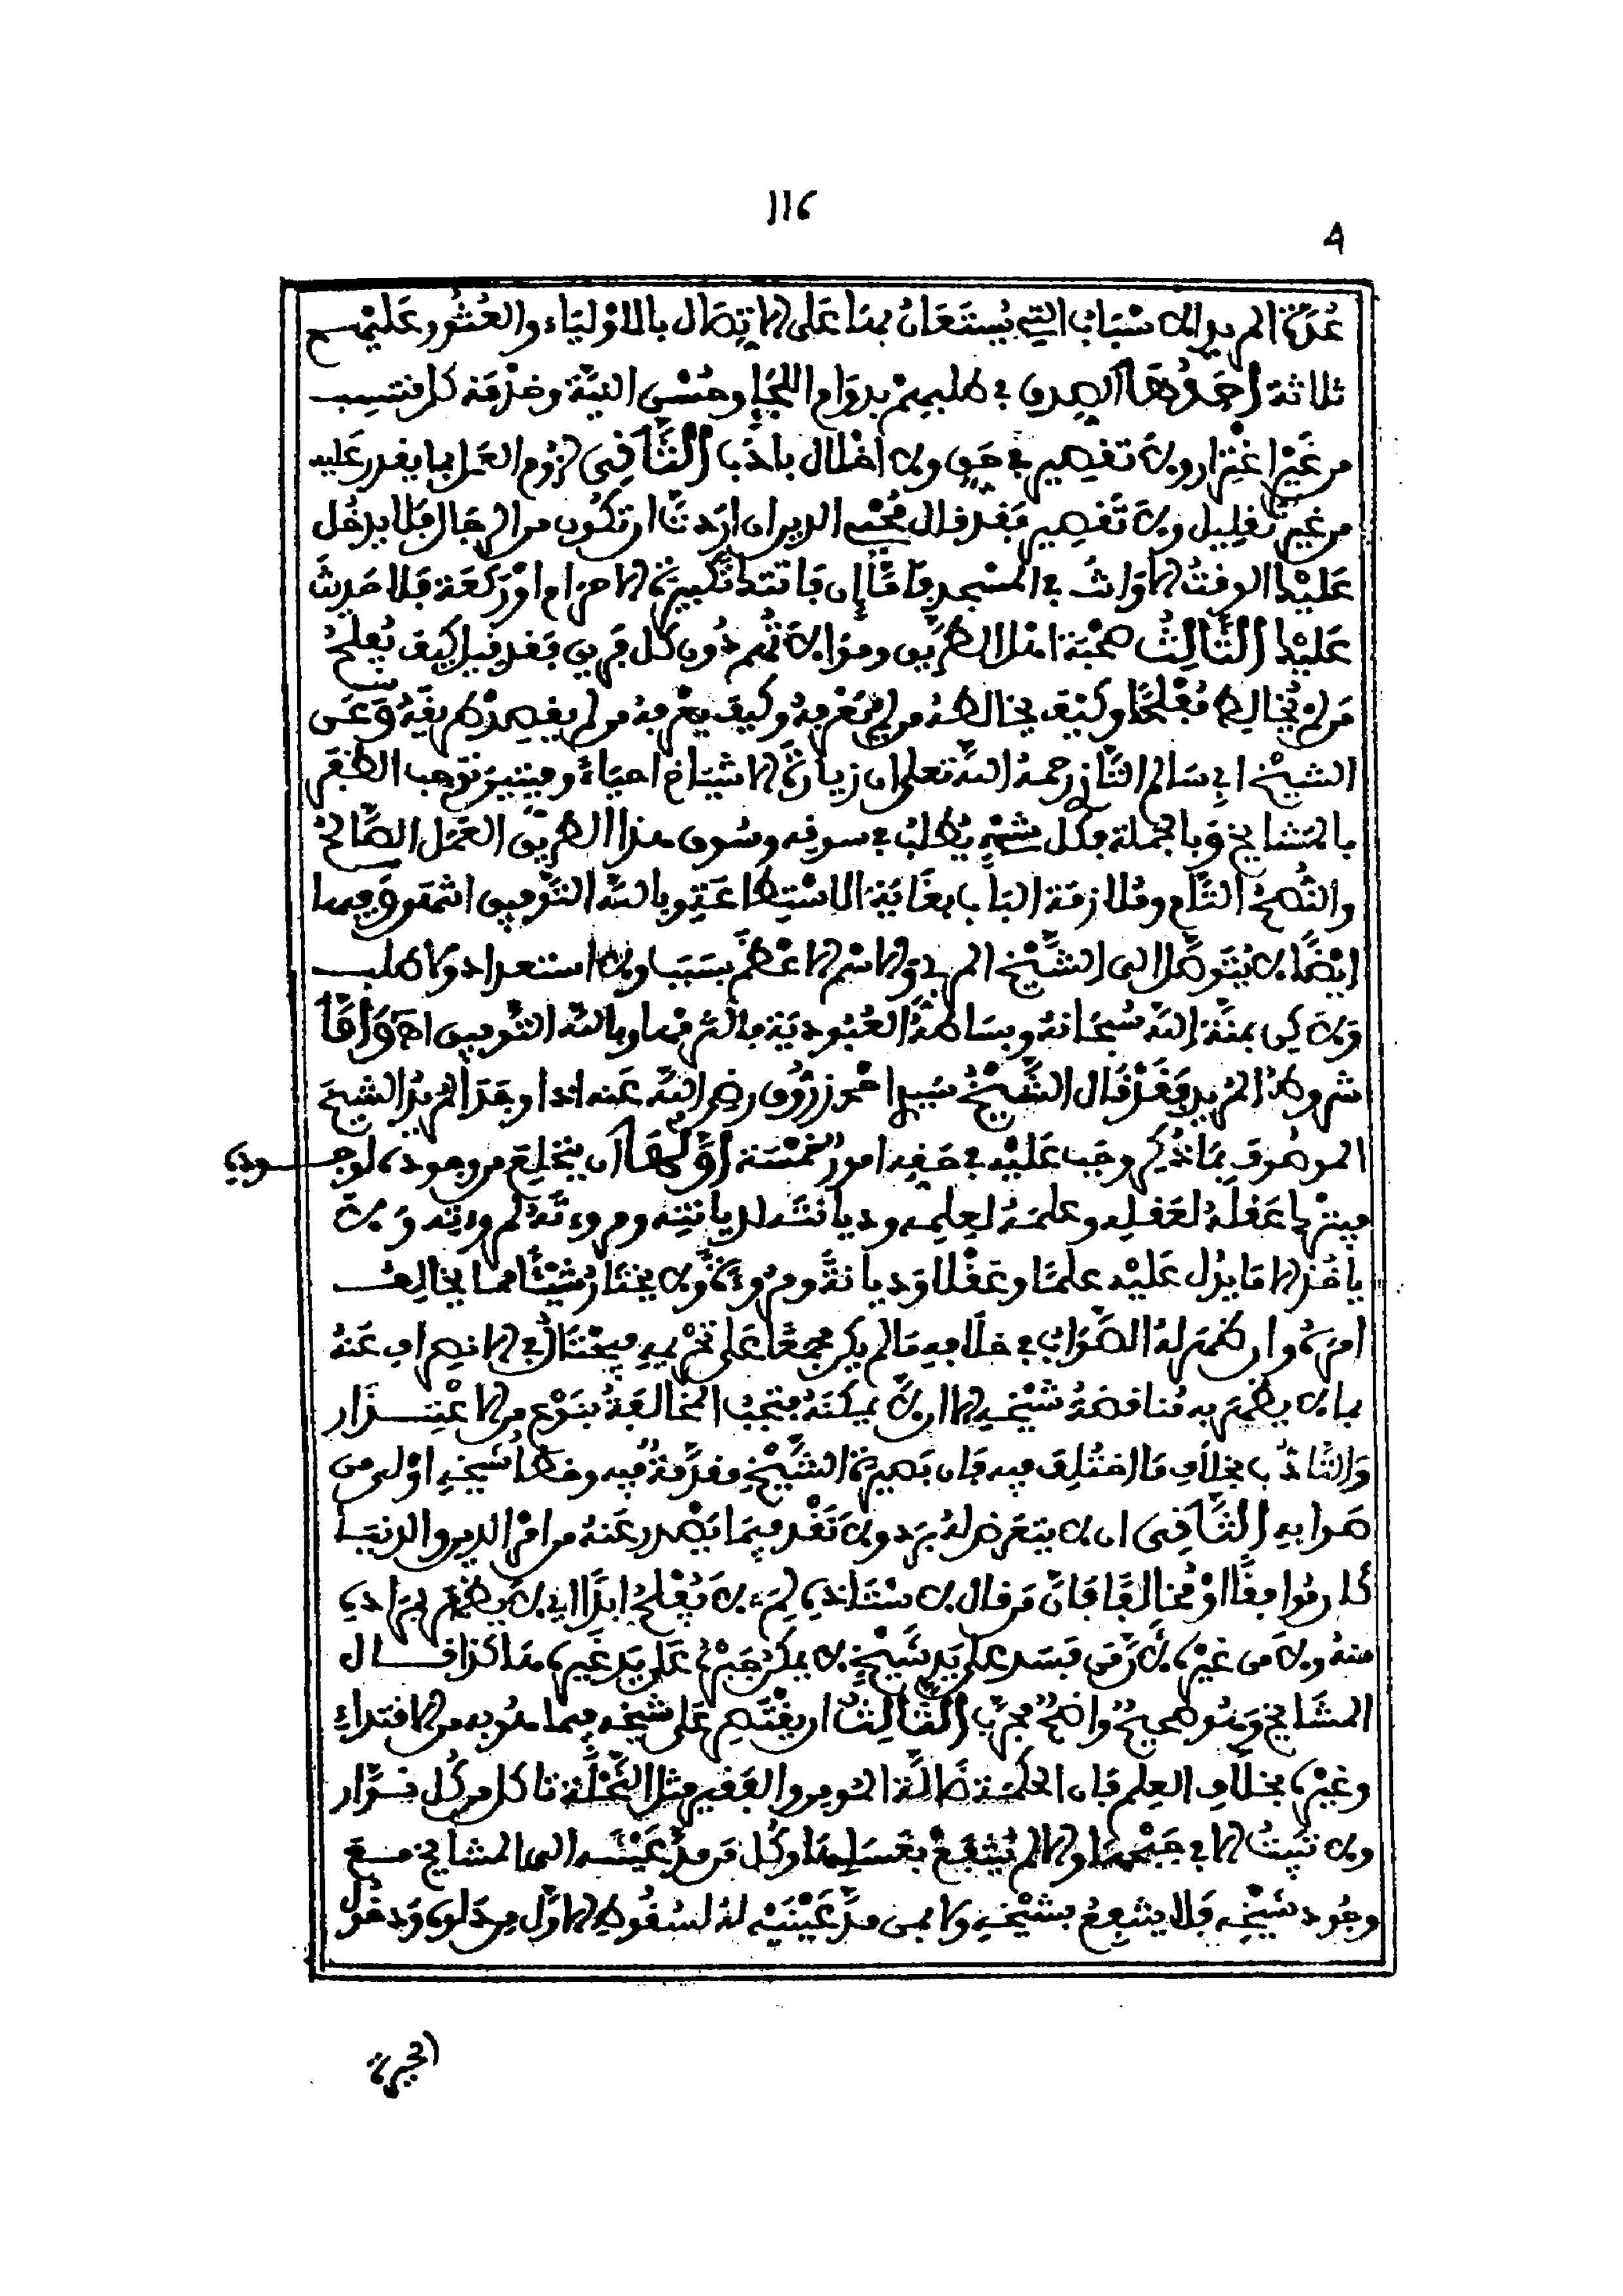 116
4
عُدَّة المريد الاسْبَابُ التي يُسْتَعَانُ بهَا عَلى الاتِّصَال بالاوْلِيَاء والعُثُور عَليْهم
ثلاثة أَحَدُهَا الصدق في طلبهمْ بدوَام اللجَإ وحُسْن النيَّة وخدْمَة كل منتسب
من غَيْر اغْتِرار ولا تقصير في حَقٍّ ولا اخلال بأدَب الثَّانِي لزُوم العمل بما يقدر عَليه
من غير تقليل ولا تَقصير فقد قال مُحْيي الدين ان ارَدتَّ ان تكُون من الرجَال فلا يدخُل
عَليْك الوقتُ الا وَانتَ في المسْجد فامَّا إن فاتتك تكبيرَة الاحرَام اوْ رَكعَة فلا حَدِيثَ
عَليْك الثَّالِثُ صحْبَة اهْل الطريق وهوَ الاهَم دُون كل قريق فقد قيل كيْف يُفلحُ
مَن لم يُخالِط مُفْلحًا وكيْف يخالطهُ من لم يَعْرفهُ وكيف يعْرفهُ من لم يقصِدْ طريقَهُ وَعَن
الشيْخ ابي سَالم التَّازي رحمهُ اللّه تعلى ان زيارَة الاشيَاخ احيَاءً وميتين توجب الظفَر
بالمَشايخ وَبالجملة فكُل شيْءٍ يُطلبُ في سوقه وسُوق هذا الطريق العَمَل الصَّالحُ
والنُّصحُ التَّام ومُلازمَة البَاب بغَايَة الاسْتِطاعَة وباللّه التَّوفيق انتهى وَفيها
ايْضًا لا يُتَوصَّل الى الشَّيْخ المربي والاسْم الاعْظم بسَبَب ولا استعداد ولا طلب
وَلاكن بمنَّة اللّه سُبحَانهُ وبسَاطهُ العُبُوديَة فالتزمْها وباللّه التَّوفيق اهـ وَأَمَّا
شروط المُريد فقَدْ قَال الشَّيْخُ سَيدي احْمد زرُّوق رضي اللّه عَنه اذا وجَدَ المُريدُ الشيخَ
الموصُوف بمَا ذُكِر وجَب عَليْه في حَقهِ امورٌ خمْسَة أَوَّلُهَا أن يَنخَلِعَ من وجوده لوجوده
فيتركُ عَقلَهُ لعَقلِه وعلمَهُ لعِلمِه وديانتَه لديانتِه ومروءتَهُ لمروءته وَلا
ياخُذ الا مَا يدُل عَليْه علمًا وعَقْلا وَديانةً ومرُوءةً ولا يختَارُ شَيْئًا مما يخالِف
امرَهُ وان ظهَر لهُ الصَّوابُ في خلافِه مَا لم يكن مجمَعًا عَلى تحْريمِه فيحْتَالُ في الانصراف عَنهُ
بما لا يظهَر به مُناقضَةُ شَيْخهِ الا ان لا يمكنَهُ فتجبُ المخالفةُ بنَوْع من الاعْتِذَار
وَالتَّأدُّب بخلاف مَا اختُلِف فيه فان بَصيرَة الشَّيْخ مقدَّمَةٌ فيه وخطأ شيخهِ اوْلى من
صَوابِه الثَّانِي ان لا يتعَرض لهُ برَد ولا نَقْد فيمَا يَصْدر عَنهُ من امْر الدين والدنيَا
كان مُوافِقًا اوْ مُخالفًا فانّ مَن قال لاسْتَاذه لِمَ لا يُفْلحُ ابدًا اي لا يَظهَر بمرَاده
منه ولا من غيره لانَّ مَن فسَد على يَد شَيْخٍ لا يمكن جَبْرُهُ عَلى يَد غَيره هَاكذا قال
المشَايخ وَهُو صَحيحٌ واضحٌ مجرّب الثَّالِثُ ان يقْتَصِر عَلى شَيْخه فيما هُو به من الاقتداء
وغيْره بخلاف العِلم فان الحكمة ضَالَّة المومن والفَقير مِثل النَّحْلَة تاكل من كُل نوَّار
ولا تَبِيتُ الا في جَبْحِهَا والا لم يُنْتَفِعْ بعَسَلِهَا وكُل مَن مدَّ عَيْنَه الى المشايخ مع
وجُود شَيْخِه فلا ينتَفِعُ بشَيْخهِ ولا بمن مدَّ عَيْنَيْه لهُ لسُقُوط الاوَّل من دَلوه وَدخُول